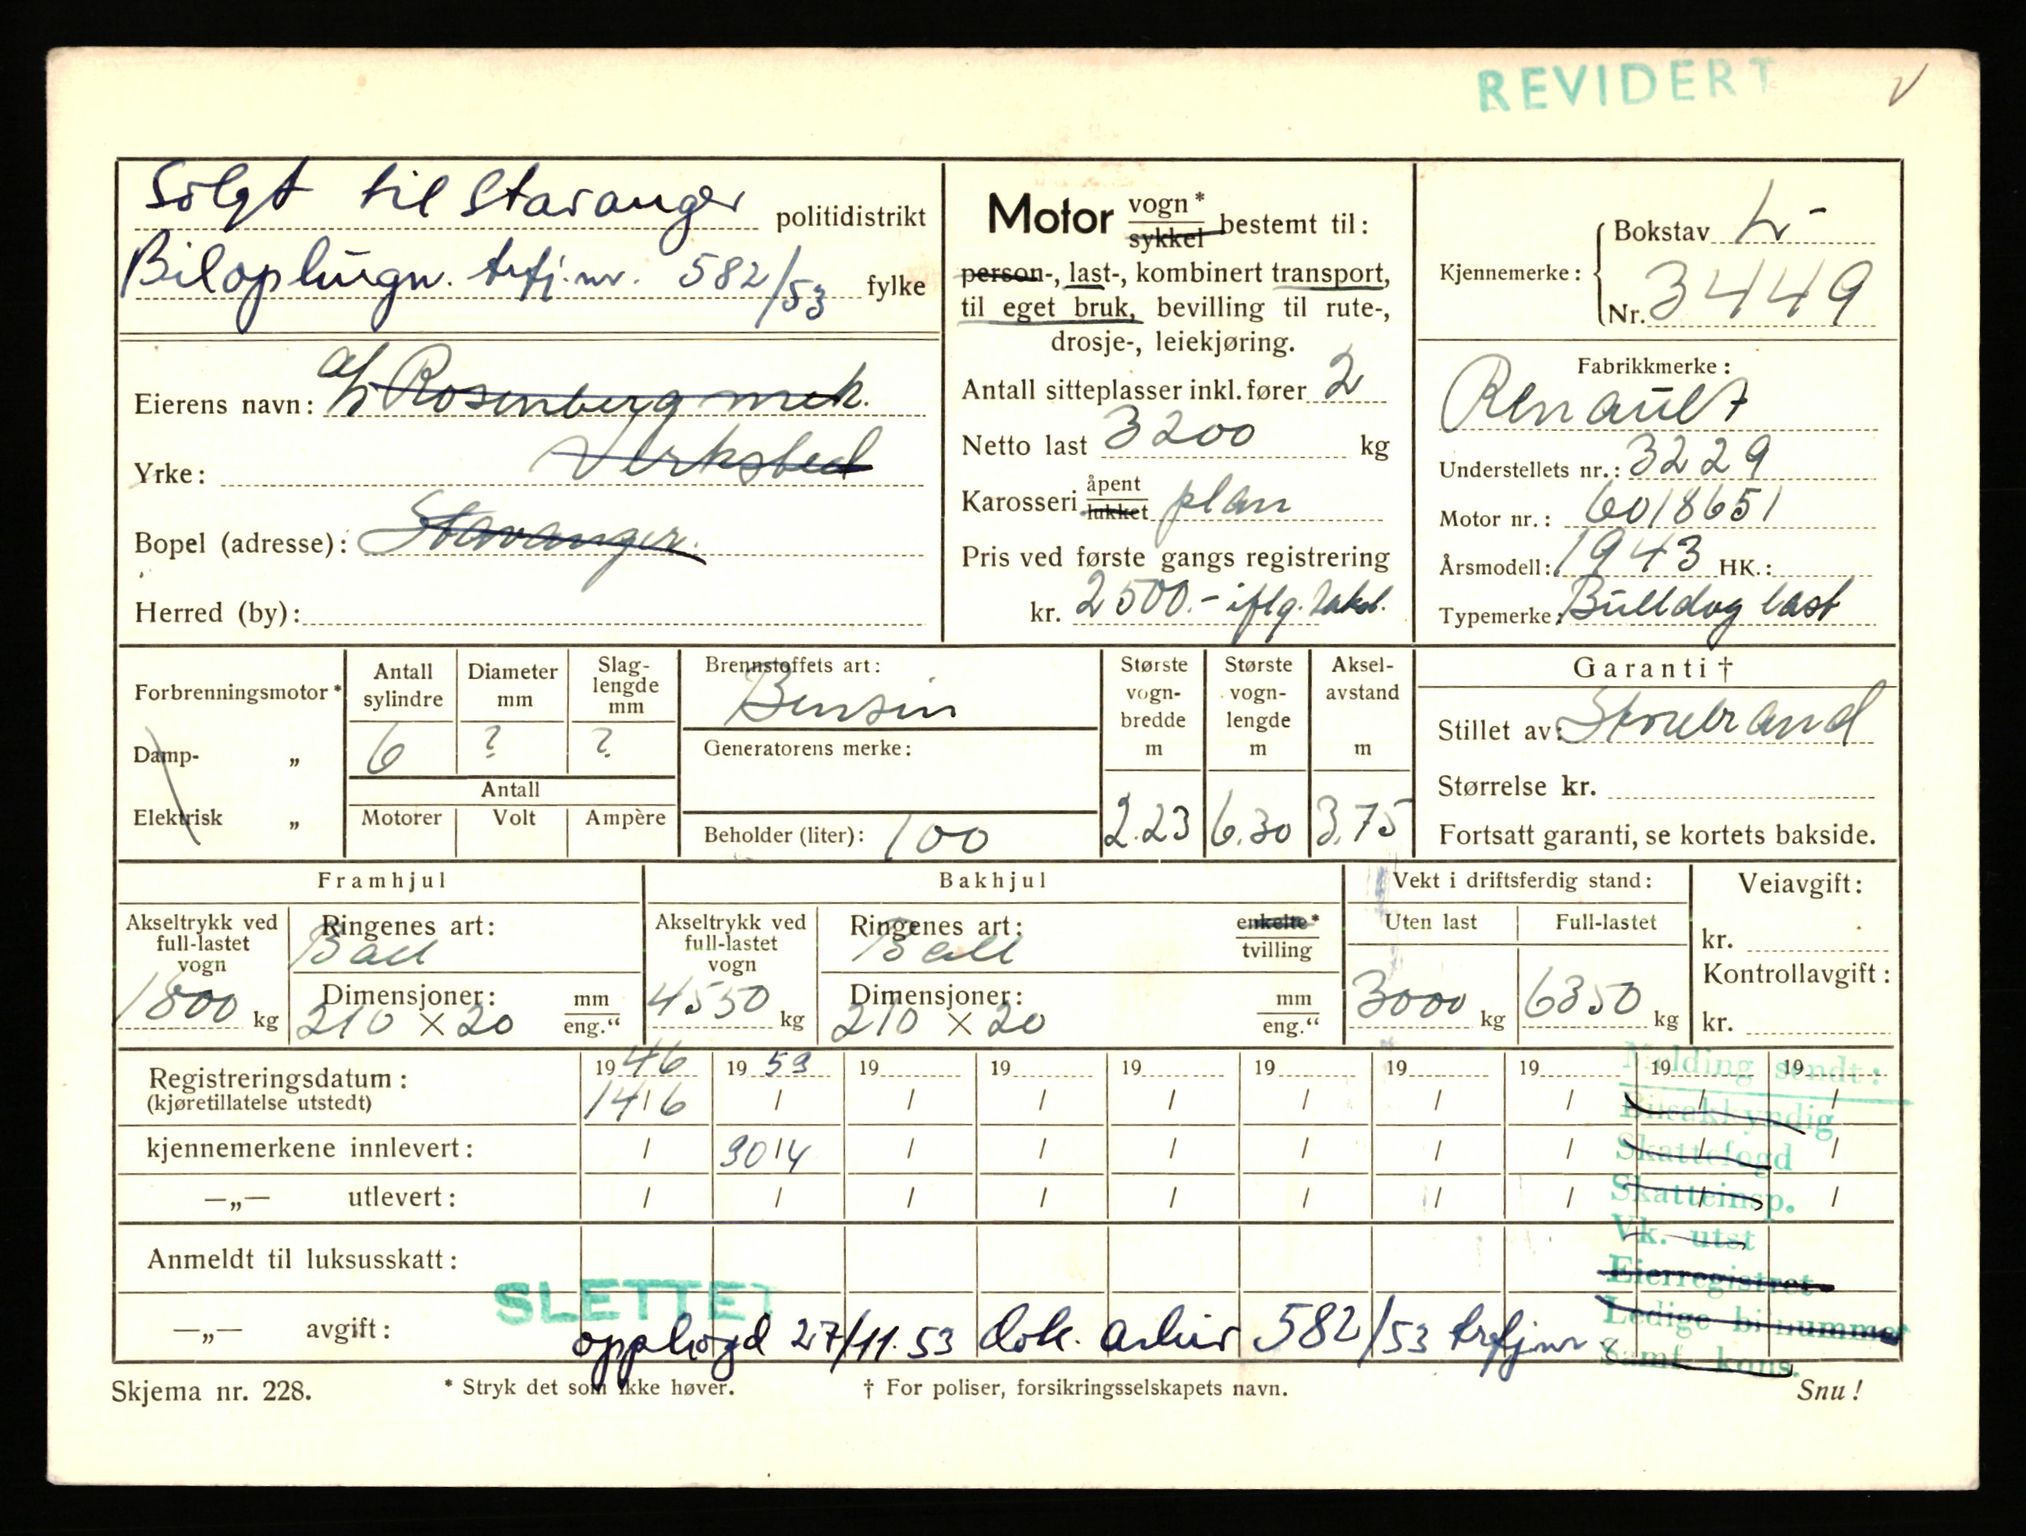 REVIDERT
Solgt til Stavanger politidistrikt
Bilophugn. trfj.nr. 582/53 fylke
Eierens navn: a/s Rosenberg mek.
Yrke: Verksted
Bopel (adresse): Stavanger.
Herred (by):
Motor vogn* sykkel bestemt til:
person-, last-, kombinert transport,
til eget bruk, bevilling til rute-,
drosje-, leiekjøring.
Antall sitteplasser inkl. fører 2
Netto last 3200 kg
Karosseri åpent lukket plan
Pris ved første gangs registrering
kr. 2500.- iflg. takst.
Kjennemerke: Bokstav L-
Nr. 3449
Fabrikkmerke:
Renault
Understellets nr.: 3229
Motor nr.: 6018651
Årsmodell: 1943 HK.:
Typemerke: Bulldog last
Forbrenningsmotor*
Damp- „
Elektrisk „
Antall sylindre Diameter mm Slag- lengde mm
6 ? ?
Antall
Motorer Volt Ampère
Brennstoffets art:
Bensin
Generatorens merke:
Beholder (liter): 100
Største vogn- bredde m
2.23
Største vogn- lengde m
6.30
Aksel- avstand m
3.75
Garanti †
Stillet av: Storebrand
Størrelse kr.
Fortsatt garanti, se kortets bakside.
Framhjul
Akseltrykk ved full-lastet vogn
1800 kg
Ringenes art:
Ball
Dimensjoner: mm eng.“
210 × 20
Bakhjul
Akseltrykk ved full-lastet vogn
4550 kg
Ringenes art: enkelte* tvilling
Ball
Dimensjoner: mm eng.“
210 × 20
Vekt i driftsferdig stand:
Uten last Full-lastet
3000 kg 6350 kg
Veiavgift:
kr.
Kontrollavgift:
kr.
Registreringsdatum: 19 46 19 53 19 19 19 19 19 19 19 19
(kjøretillatelse utstedt) 14/6 / / / / / / / / /
kjennemerkene innlevert: / 30/4 / / / / / / / /
—„— utlevert: / / / / / / / / / /
Anmeldt til luksusskatt:
—„— avgift:
SLETTET
opphogd 27/11.53 dok. arkiv 582/53 trfjnr
Melding sendt:
Bilsakkyndig
Skattefogd
Skatteinsp.
Vk. utst
Eierregistret
Ledige bi nummer
Samf. kons.
Skjema nr. 228. * Stryk det som ikke høver. † For poliser, forsikringsselskapets navn. Snu!